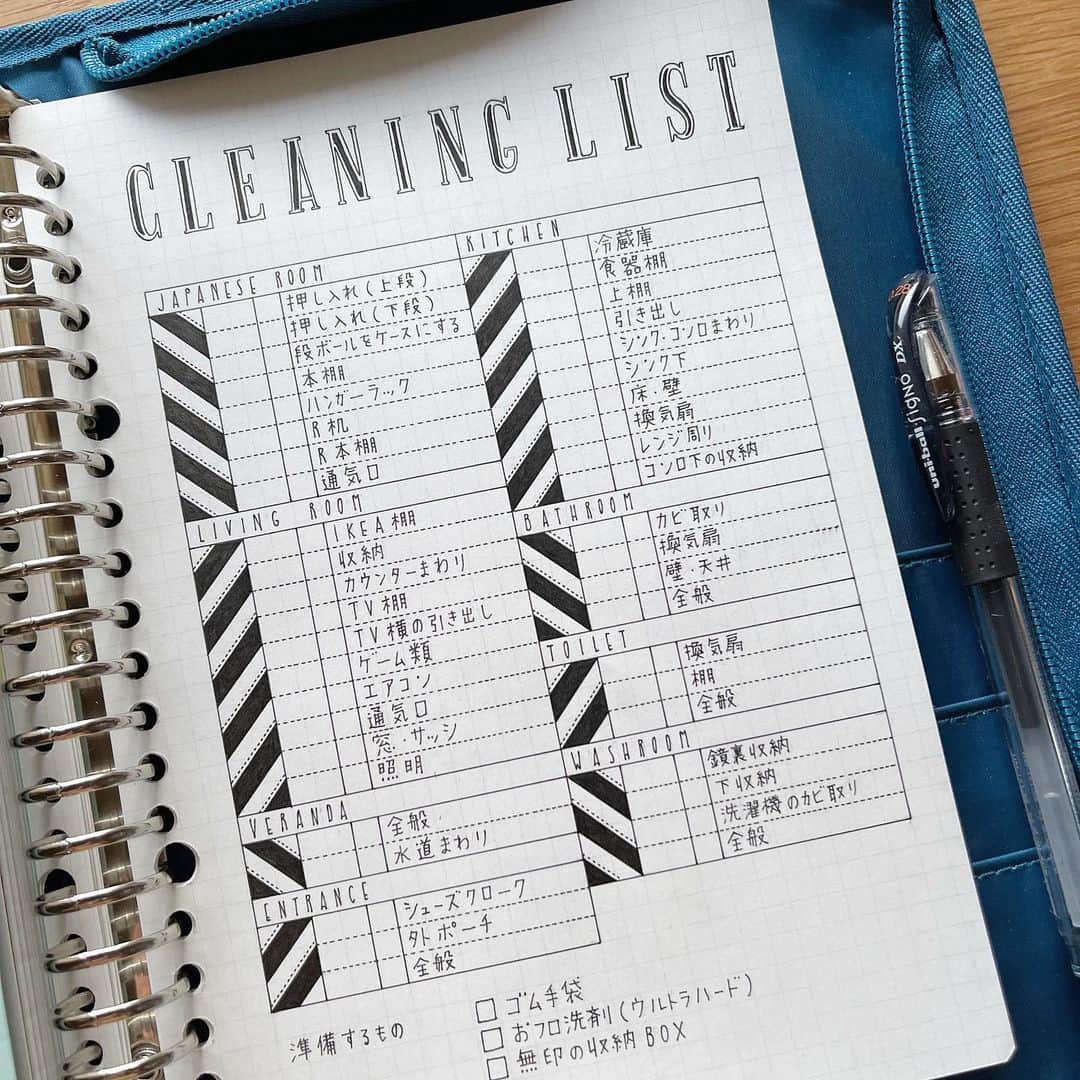 CLEANING LIST
JAPANESE ROOM
押し入れ(上段)
押し入れ(下段)
段ボールをケースにする
本棚
ハンガーラック
R机
R本棚
通気口
LIVING ROOM
IKEA棚
収納
カウンターまわり
TV棚
TV横の引き出し
ゲーム類
エアコン
通気口
窓・サッシ
照明
VERANDA
全般
水道まわり
ENTRANCE
シューズクローク
外ポーチ
全般
KITCHEN
冷蔵庫
食器棚
上棚
引き出し
シンク・コンロまわり
シンク下
床・壁
換気扇
レンジ周り
コンロ下の収納
BATHROOM
カビ取り
換気扇
壁・天井
全般
TOILET
換気扇
棚
全般
WASHROOM
鏡裏収納
下収納
洗濯機のカビ取り
全般
準備するもの
ゴム手袋
おフロ洗剤(ウルトラハード)
無印の収納BOX
uni-ball Signo DX